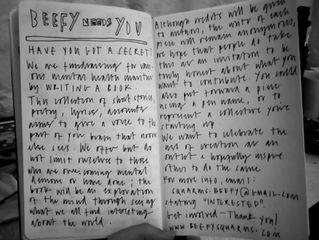 BEEFY NEEDS YOU
HAVE YOU GOT A SECRET?
We are fundraising for var-
ious mental health charities
by WRITING A BOOK.
This collection of short stories,
poetry, lyrics, amounts
aims to give a voice to the
part of your brain that none
else sees. We offer but do
not limit ourselves to those
who are overcoming mental
demons or have done; the
book will be an exploration
of the mind through seeing
what we all find interesting
about the world.
Although credits will be given
to authors, the write of each
piece will remain anonymous,
we hope that people do take
this as an invitation to be
truly honest about what you
want to contribute. You could
also put toward a piece
using a pen name, or to
represent a collective you're
starting up.
We want to celebrate the
art of creation as an
outlet & hopefully inspire
others to do the same.
For more info, email:
SQUARMS.BEEFY@GMAIL.COM
stating "INTERESTED".
Get involved - Thank you!
WWW.BEEFYSQUARMS.COM